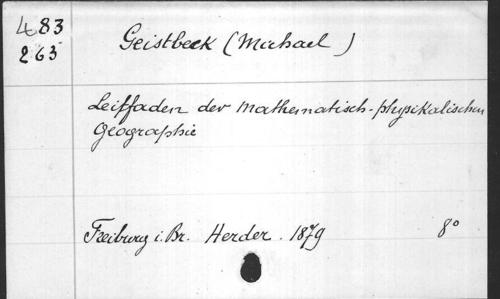 483
263
Geistbeck (Michael)
Leitfaden der mathematisch-physikalischen
Geographie
Freiburg i. Br. Herder. 1879 8°